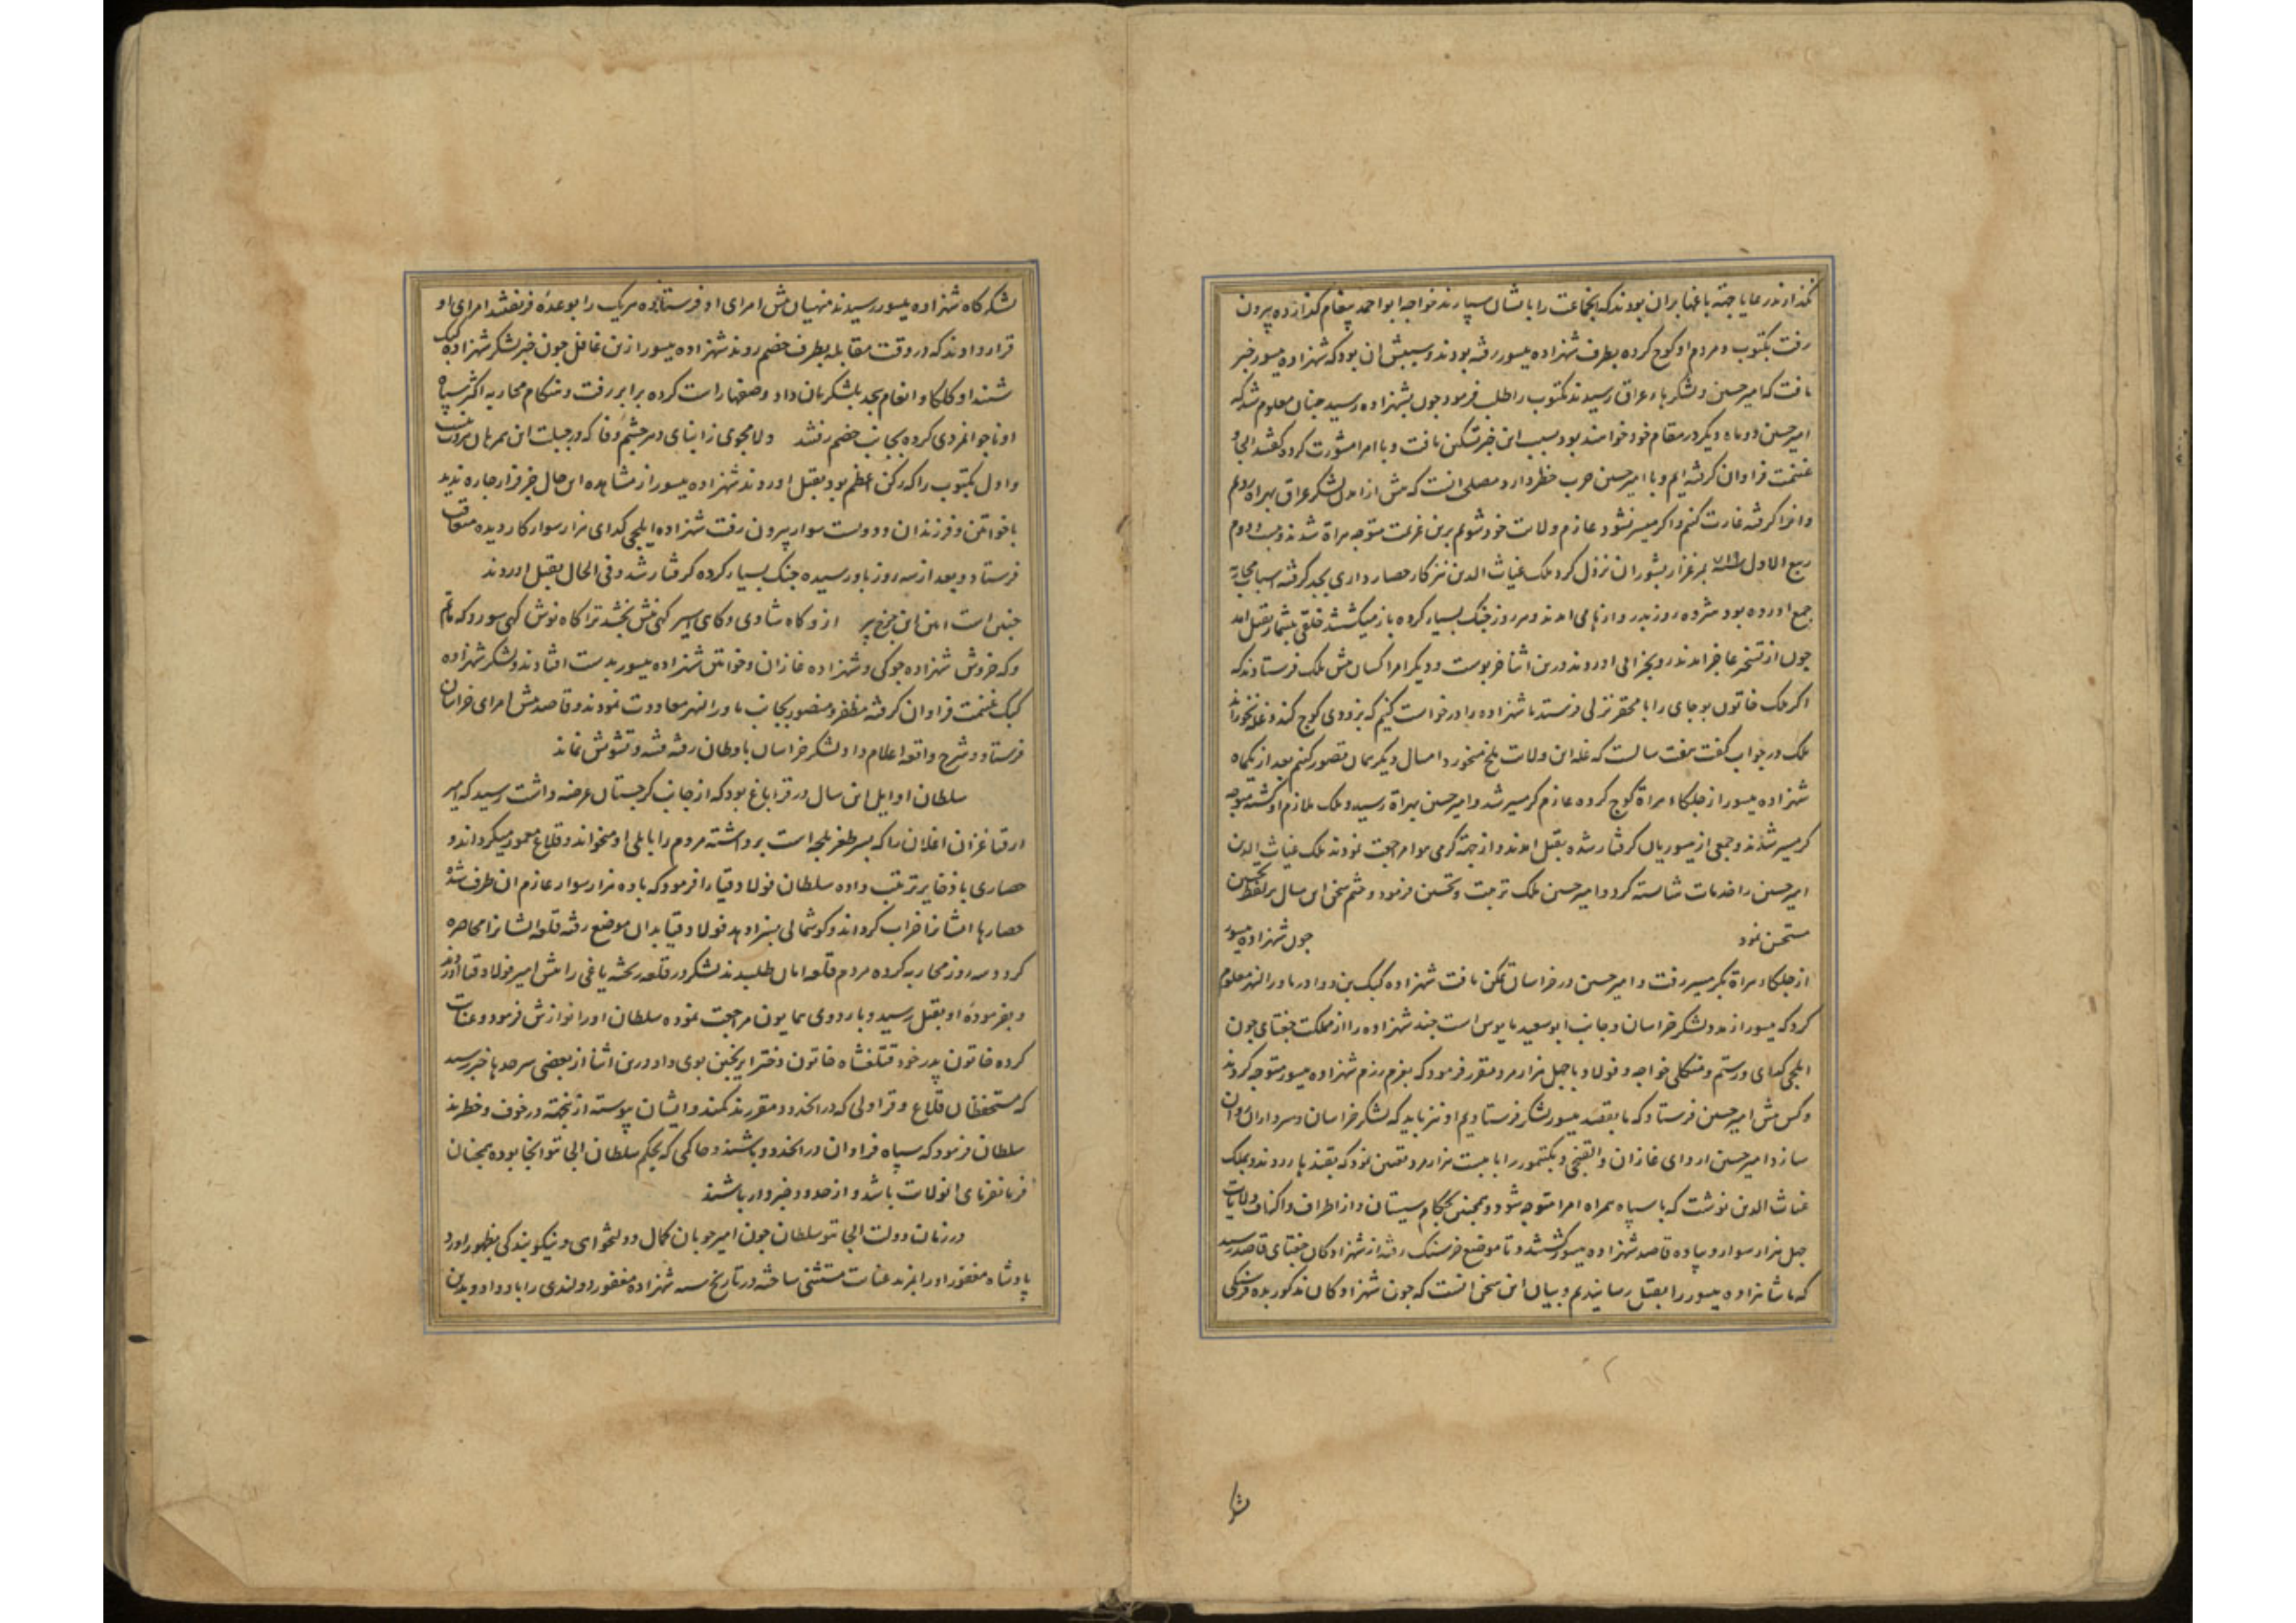 نکذارند رعایا جهة باغها بران بودند که انجماعت را بایشان سپارند خواجه ابو احمد پیغام کذارده بیرون
رفت بکتوب و مردم او کوچ کرده بطرف شهزاده یسور رفته بودند و سببش ان بود که شهزاده یسور خبر
یافت که امیر حسین و لشکر با عراق رسیدند بکتوب را طلب فرمود چون بشهزاده رسید چنان معلوم شد که
امیر حسین دو ماه دیکر در مقام خود خواهند بود بسبب این خبر تسکین یافت و با امرا مشورت کرد کفتند اینجا
غنیمت فراوان کرفته ایم و با امیر حسین حرب خطر دارد مصلحت انست که پیش از امدن لشکر عراق بهراه رویم
و انرا کرفته غارت کنیم و اکر میسر نشود عازم ولایت خود شویم برین عزیمت متوجه هراة شدند و بیست و دوم
ربیع الاول ۷۱۹ بمرغزار بشوران نزول کرد ملک غیاث الدین نیز کار حصار داری بجد کرفته اسباب محاربه
جمع اورده بود هژده روز بدر دروازها می امدند و هر روز جنک بسیار کرده باز میکشتند خلقی بیشمار بقتل امد
چون از تسخیر عاجز امدند رو بخرابی اوردند و درین اثنا خربوست و دیکر امرا کسان پیش ملک فرستادند که
اکر ملک خاتون بوجای را با محقر نزلی فرستد ما شهزاده را درخواست کنیم که بزودی کوچ کند و غله نخوراند
ملک در جواب کفت هفت سالست که غله این ولایت ملخ میخورد امسال دیکر همان تصور کنیم بعد از یکماه
شهزاده یسور از جلکاء هراة کوچ کرده عازم کرمسیر شد و امیر حسین بهراة رسید و ملک ملازم او کشته متوجه
کرمسیر شدند و جمعی از یسوریان کرفتار شده بقتل امدند و از جهة کرمی هوا مراجعت نمودند ملک غیاث الدین
امیر حسین را خدمات شایسته کرد و امیر حسین ملک تربیت و تحسین فرمود و ختم سخن این سال بر لفظ تحسین
مستحسن نمود چون شهزاده یسور
از جلکاء هراة بکرمسیر رفت و امیر حسین در خراسان تمکن یافت شهزاده کبک بن دوا در ماورا النهر معلوم
کرد که یسور از مدد لشکر خراسان و جانب ابو سعید مایوس است چند شهزاده را از مملکت جغتای چون
ایلجی کدای و رستم و منکلی خواجه و فولاد با چهل هزار مرد مقرر فرمود که بعزم رزم شهزاده یسور متوجه کردند
و کس پیش امیر حسین فرستاد که ما بقصد یسور لشکر فرستادیم او نیز باید که لشکر خراسان و سرداران روان
سازد امیر حسین اردای غازان و القتجی و بکتمور را با بیست هزار مرد تعیین نمود که بقندهار روند و بملک
غیاث الدین نوشت که با سپاه همراه امرا متوجه شود و همچنین بحکام سیستان و از اطراف و اکناف ولایات
چهل هزار سوار و پیاده قاصد شهزاده یسور کشتند و تا موضع فرسنک رفته از شهزادکان جغتای قاصد رسید
که ما شاهزاده یسور را بقتل رسانیدیم و بیان این سخن انست که چون شهزادکان مذکور بده فرسنکی
شا
لشکر کاه شهزاده یسور رسیدند منهیان پیش امرای او فرستاده هریک را بوعدهٔ فریفتند امرای او
قرار دادند که در وقت مقابله بطرف خصم روند شهزاده یسور ازین غافل چون خبر لشکر شهزاده کبک
شنید او کلکا و انعام بیحد بلشکریان داد و صفها راست کرده برابر رفت و هنکام محاربه اکثر سپاه
او ناجوانمردی کرده بجانب خصم رفتند ولا مجوی ز ابنای دهر چشم وفا که در جبلت این همرهان مروت نیست
و اول بکتوب را که رکن اعظم بود بقتل اوردند شهزاده یسور از مشاهده این حال جز فرار چاره ندید
با خواتین و فرزندان و دویست سوار بیرون رفت شهزاده ایلجی کدای هزار سوار کار دیده متعاقب
فرستاد و بعد از سه روز باو رسیده جنک بسیار کرده کرفتار شد و فی الحال بقتل اوردند
چنین است ایین این چرخ پیر ازو کاه شادی و کاهی اسیر کهی نیش بخشد ترا کاه نوش کهی سور و که ماتم
و که خروش شهزاده جوکی و شهزاده غازان و خواتین شهزاده یسور بدست افتادند و لشکر شهزاده
کبک غنیمت فراوان کرفته مظفر و منصور بجانب ماورا النهر معاودت نمودند و قاصد پیش امرای خراسان
فرستاد و شرح واقعه اعلام داد و لشکر خراسان باوطان رفته فتنه و تشویش نماند
سلطان اوایل این سال در قراباغ بود که از جانب کرجستان عرضه داشت رسید که امیر
ارقتا غزان اغلان را که پسر طغر بلجه است برداشته مردم را بایلی او میخواند و قلاع معمور میکرداند و
حصاری با ذخایر ترتیب داده سلطان فولاد قیا را فرمود که با ده هزار سوار عازم ان طرف شده
حصارها ایشانرا خراب کرداند و کوشمالی بسزا دهد فولاد قیا بدان موضع رفته قلعه ایشانرا محاصره
کرد و سه روز محاربه کرده مردم قلعه امان طلبیدند لشکر در قلعه ریخته یاغی را پیش امیر فولاد قیا اوردند
و بفرمودهٔ او بقتل رسید و باردوی همایون مراجعت نموده سلطان او را نوازش فرمود و عنایت
کرده خاتون پدر خود قتلغشاه خاتون دختر ایرنجین بوی داد و درین اثنا از بعضی سرحدها خبر رسید
که مستحفظان قلاع و قراولی که در انحدود مقررند کمند و ایشان پیوسته ازینجهة در خوف و خطرند
سلطان فرمود که سپاه فراوان در انحدود باشند و حاکمی که بحکم سلطان الجایتو انجا بوده همچنان
فرمانفرمای انولایت باشد و از حدود خبردار باشند
در زمان دولت الجایتو سلطان چون امیر چوبان کمال دولتخواهی و نیکو بندکی بظهور اورد
پادشاه مغفور او را بمزید عنایت مستثنی ساخته در تاریخ سنه شهزاده مغفور دولندی را باو داد و بدین